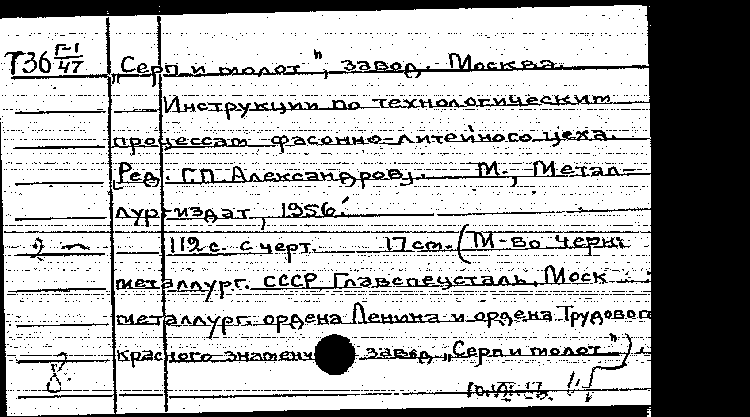 Т36 Г-1/47 „Серп и молот", завод. Москва.
Инструкции по технологическим
процессам фасонно-литейного цеха.
[Ред. Г.П. Александров]. М., Метал-
лургиздат, 1956.
112 с. с черт. 17 см. (М-во черн.
металлург. СССР Главспецсталь. Моск
металлург. ордена Ленина и ордена Трудового
красного знамени завод „Серп и молот").